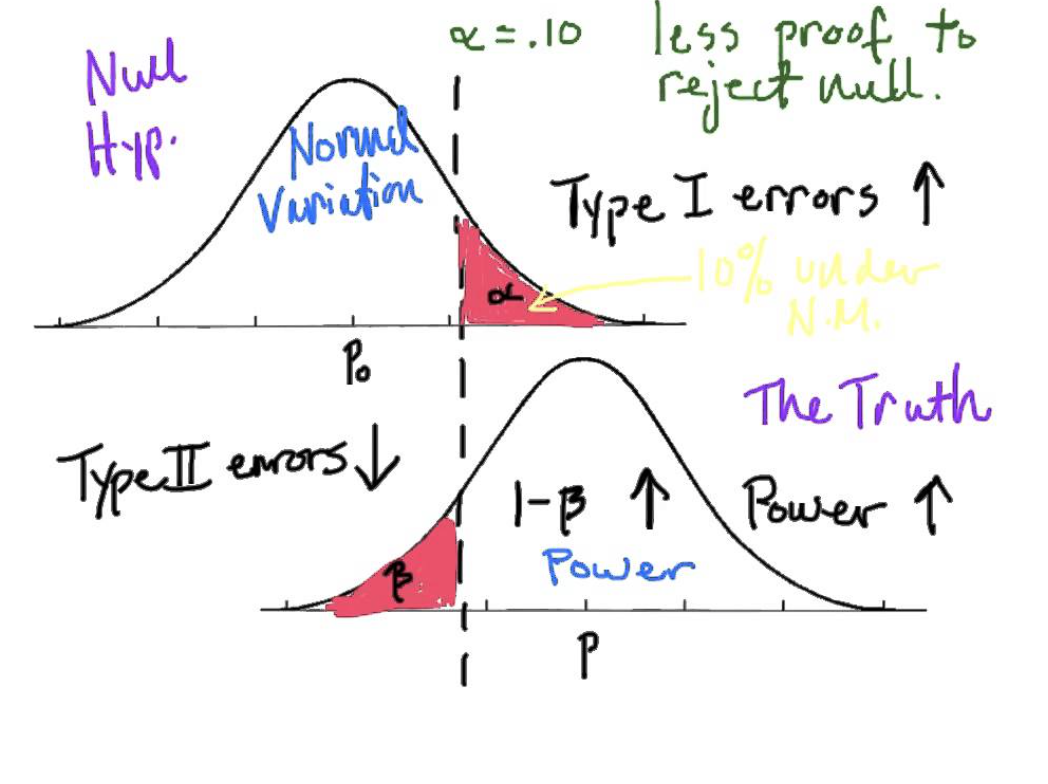 α = .10
less proof to
reject null.
Null
Hyp.
Normal
Variation
Type I errors ↑
α
10% under
N.M.
P₀
The Truth
Type II errors ↓
1-β ↑
Power ↑
Power
β
P